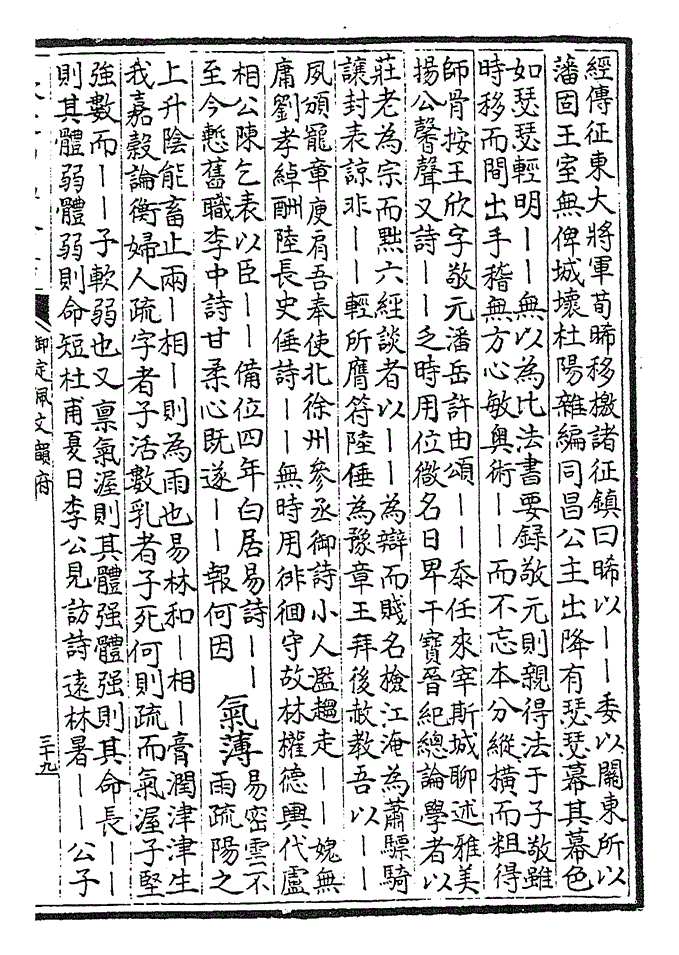 經傳征東大將軍荀晞移檄諸征鎮曰晞以——委以關東所以
藩固王室無俾城壞杜陽雜編同昌公主出降有瑟瑟幕其幕色
如瑟瑟輕明——無以為比法書要録敬元則親得法于子敬雖
時移而間出手稽無方心敏奥術——而不忘本分縱橫而粗得
師骨按王欣字敬元潘岳許由頌——忝任來宰斯城聊述雅美
揚公馨聲又詩——乏時用位微名日卑干寶晉紀總論學者以
莊老為宗而黜六經談者以——為辯而賤名檢江淹為蕭驃騎
讓封表諒非——輕所膺符陸倕為豫章王拜後赦教吾以——
夙頒寵章庾肩吾奉使北徐州參丞御詩小人濫趨走——媿無
庸劉孝綽酬陸長史倕詩——無時用徘徊守故林權德輿代盧
相公陳乞表以臣——備位四年白居易詩——
至今慙舊職李中詩甘柔心既遂——報何因
氣薄
易密雲不
雨疏陽之
上升陰能畜止兩—相—則為雨也易林和—相—膏潤津津生
我嘉穀論衡婦人疏字者子活數乳者子死何則疏而氣渥子堅
強數而——子軟弱也又稟氣渥則其體强體强則其命長——
則其體弱體弱則命短杜甫夏日李公見訪詩遠林暑——公子
御定佩文韻府
三十九